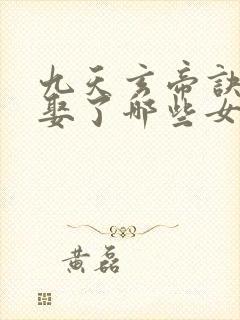 九天玄帝訣
娶了哪些女
黄磊